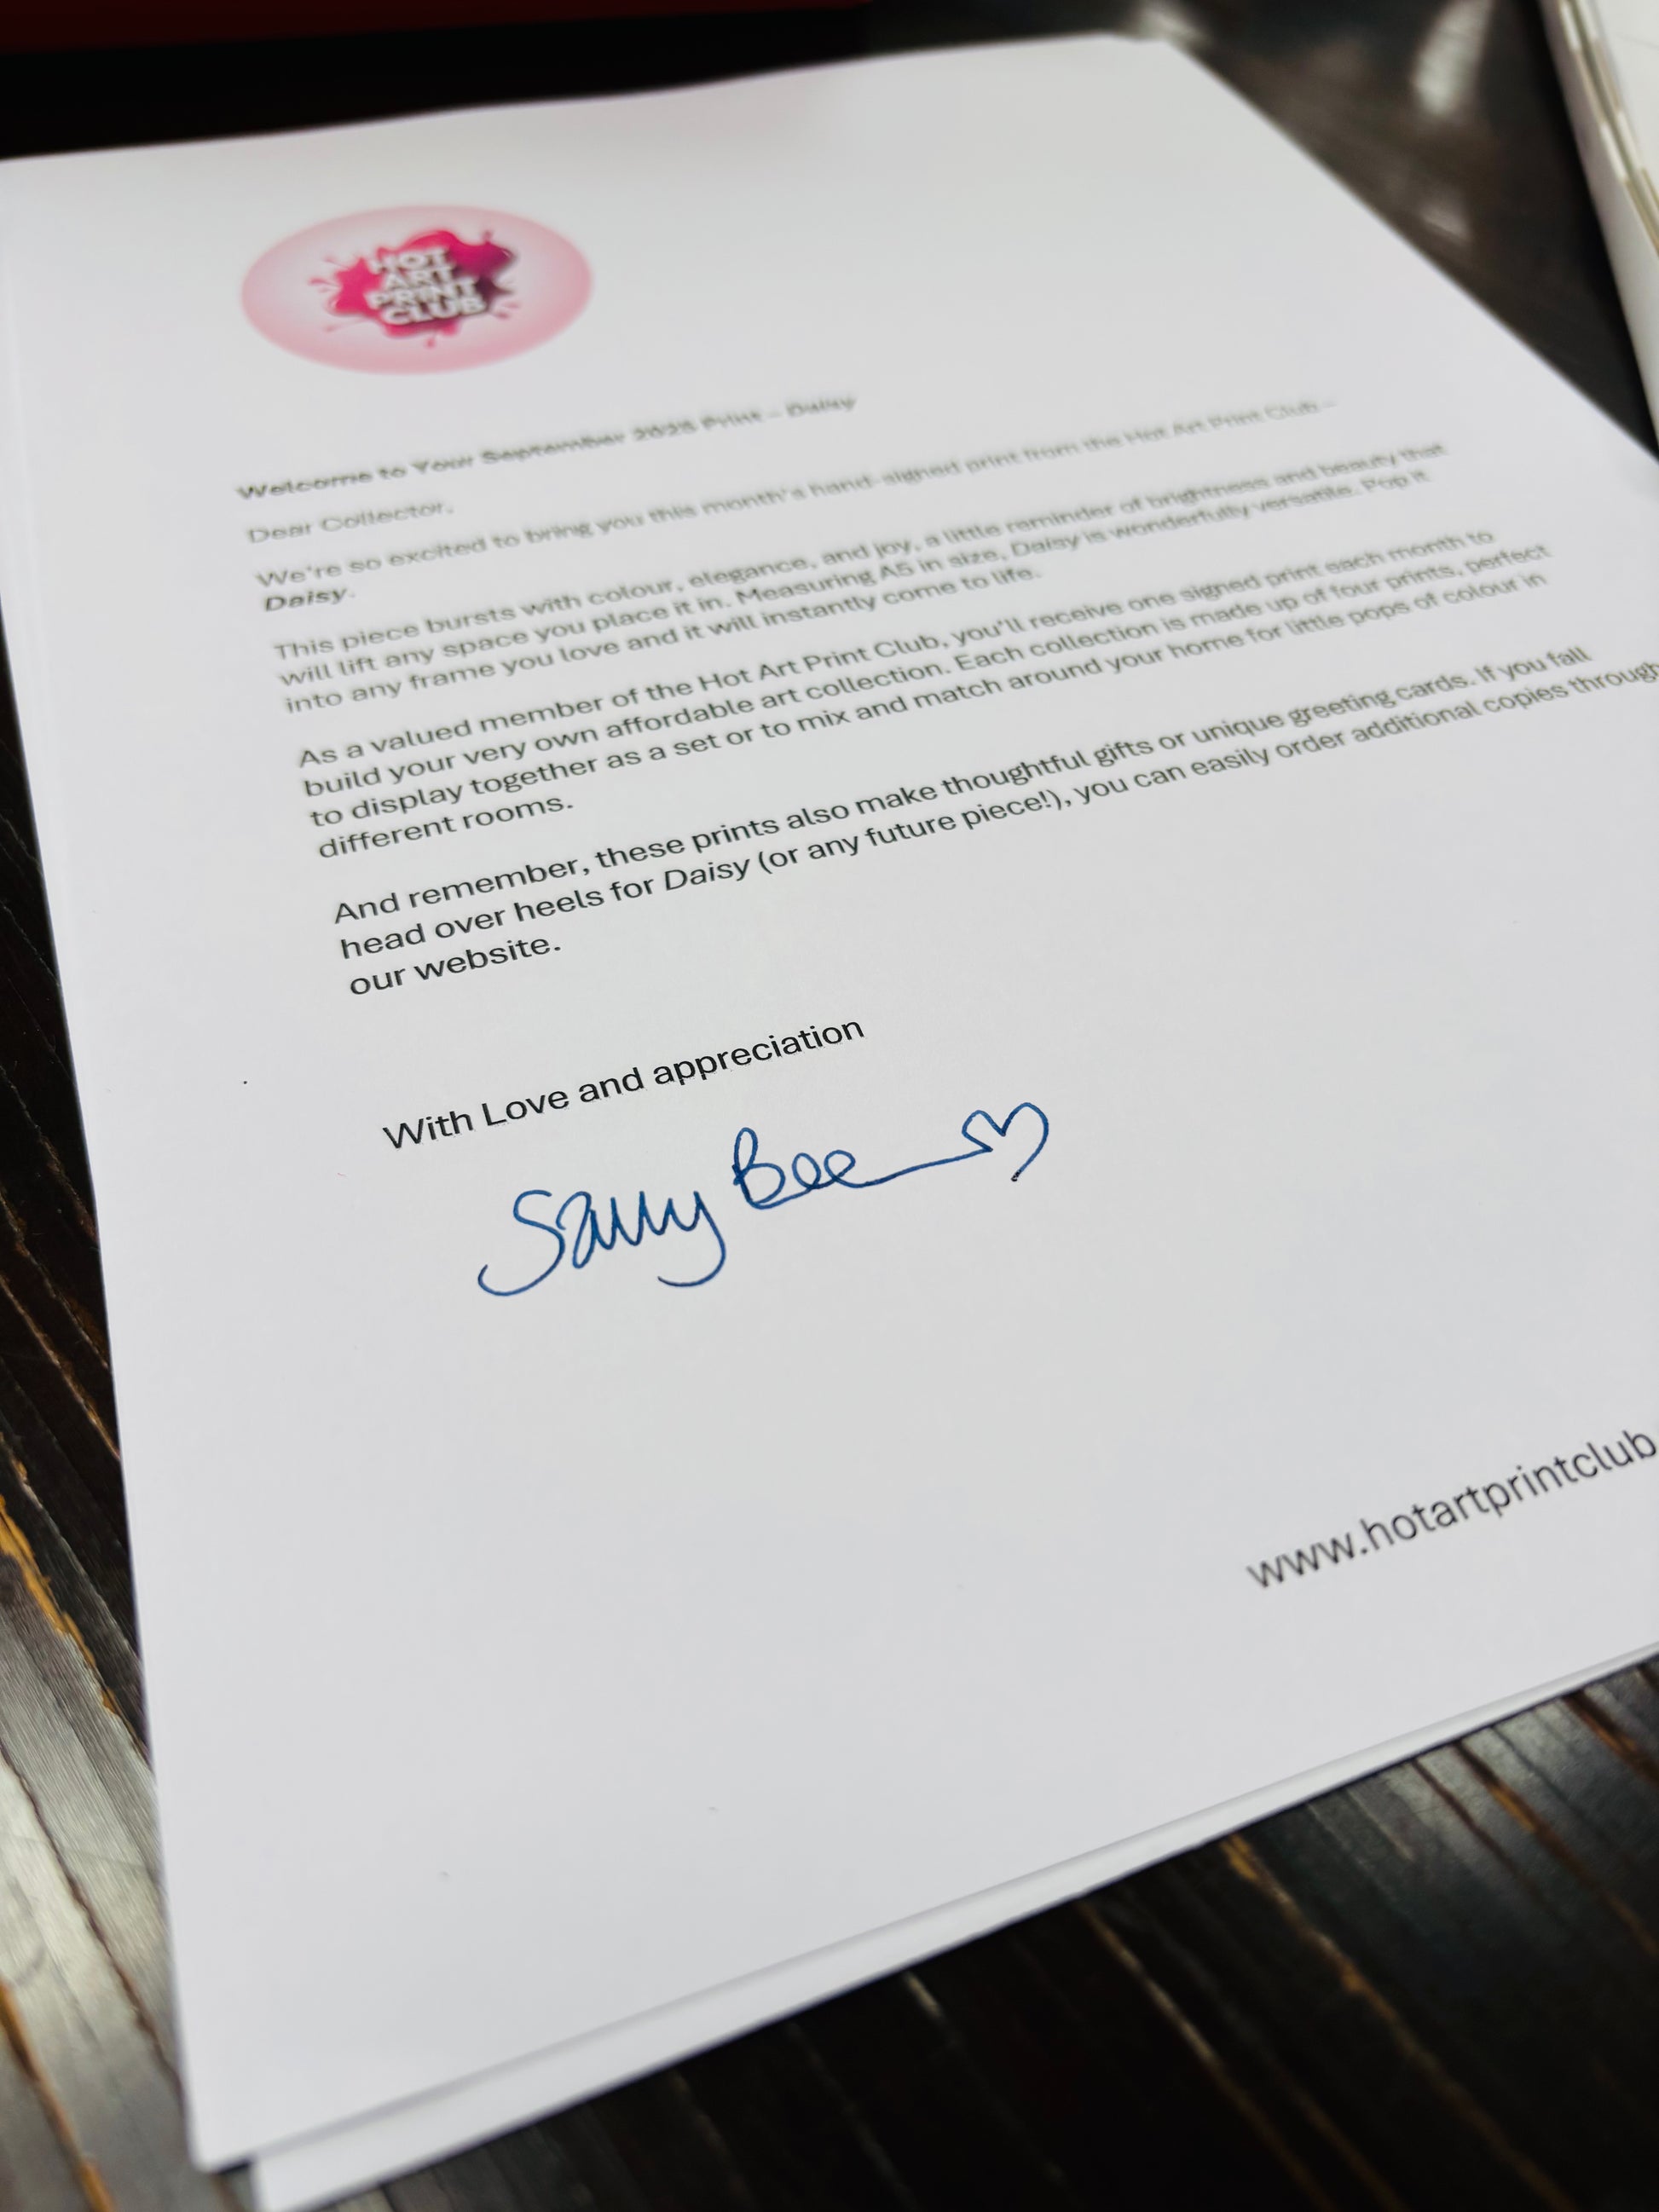 HOT
ART
PRINT
CLUB
Welcome to Your September 2025 Print – Daisy
Dear Collector,
We're so excited to bring you this month's hand-signed print from the Hot Art Print Club –
Daisy.
This piece bursts with colour, elegance, and joy, a little reminder of brightness and beauty that
will lift any space you place it in. Measuring A5 in size, Daisy is wonderfully versatile. Pop it
into any frame you love and it will instantly come to life.
As a valued member of the Hot Art Print Club, you'll receive one signed print each month to
build your very own affordable art collection. Each collection is made up of four prints, perfect
to display together as a set or to mix and match around your home for little pops of colour in
different rooms.
And remember, these prints also make thoughtful gifts or unique greeting cards. If you fall
head over heels for Daisy (or any future piece!), you can easily order additional copies through
our website.
With Love and appreciation
Sally Bee
www.hotartprintclub.